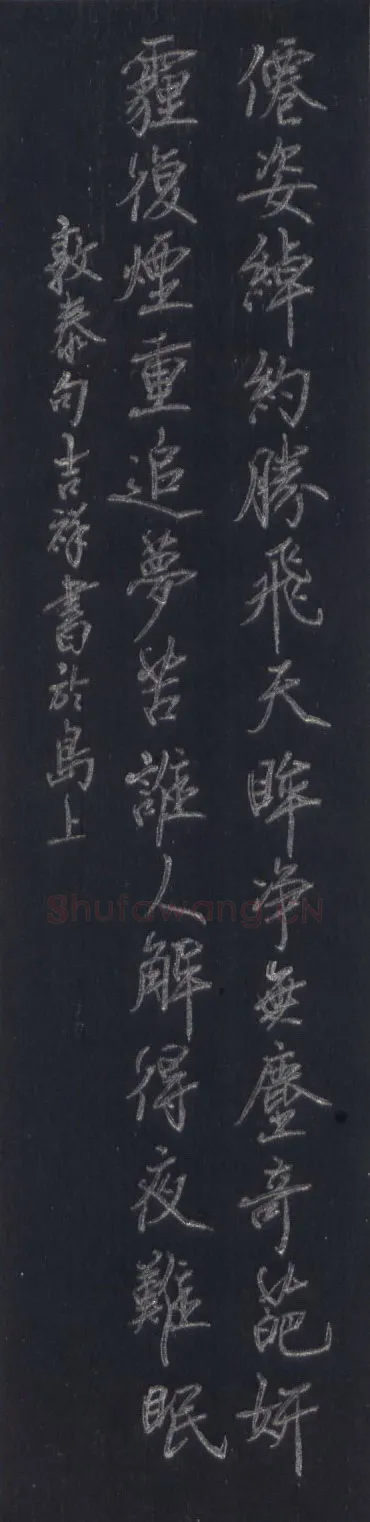 僊姿綽約勝飛天眸净無塵奇葩妍
霾復煙重追夢苦誰人解得夜難眠
敦泰句吉祥書於島上
Shufawang.CN